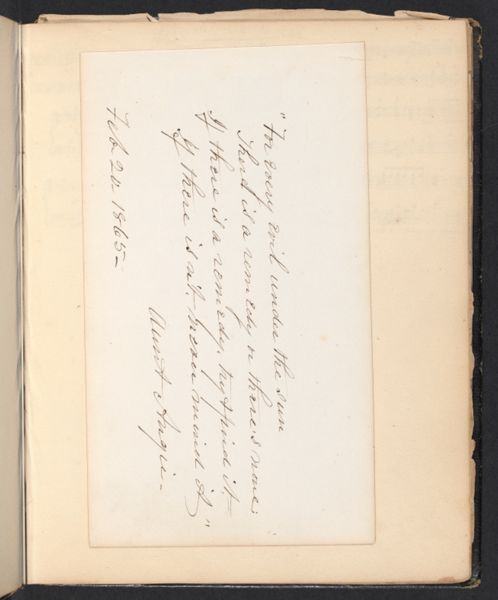 "For every evil under the sun
There is a remedy or there's none.
If there is a remedy, try & find it—
If there is n't. never mind it"
Aunt Angie.
Feb 20 1865—